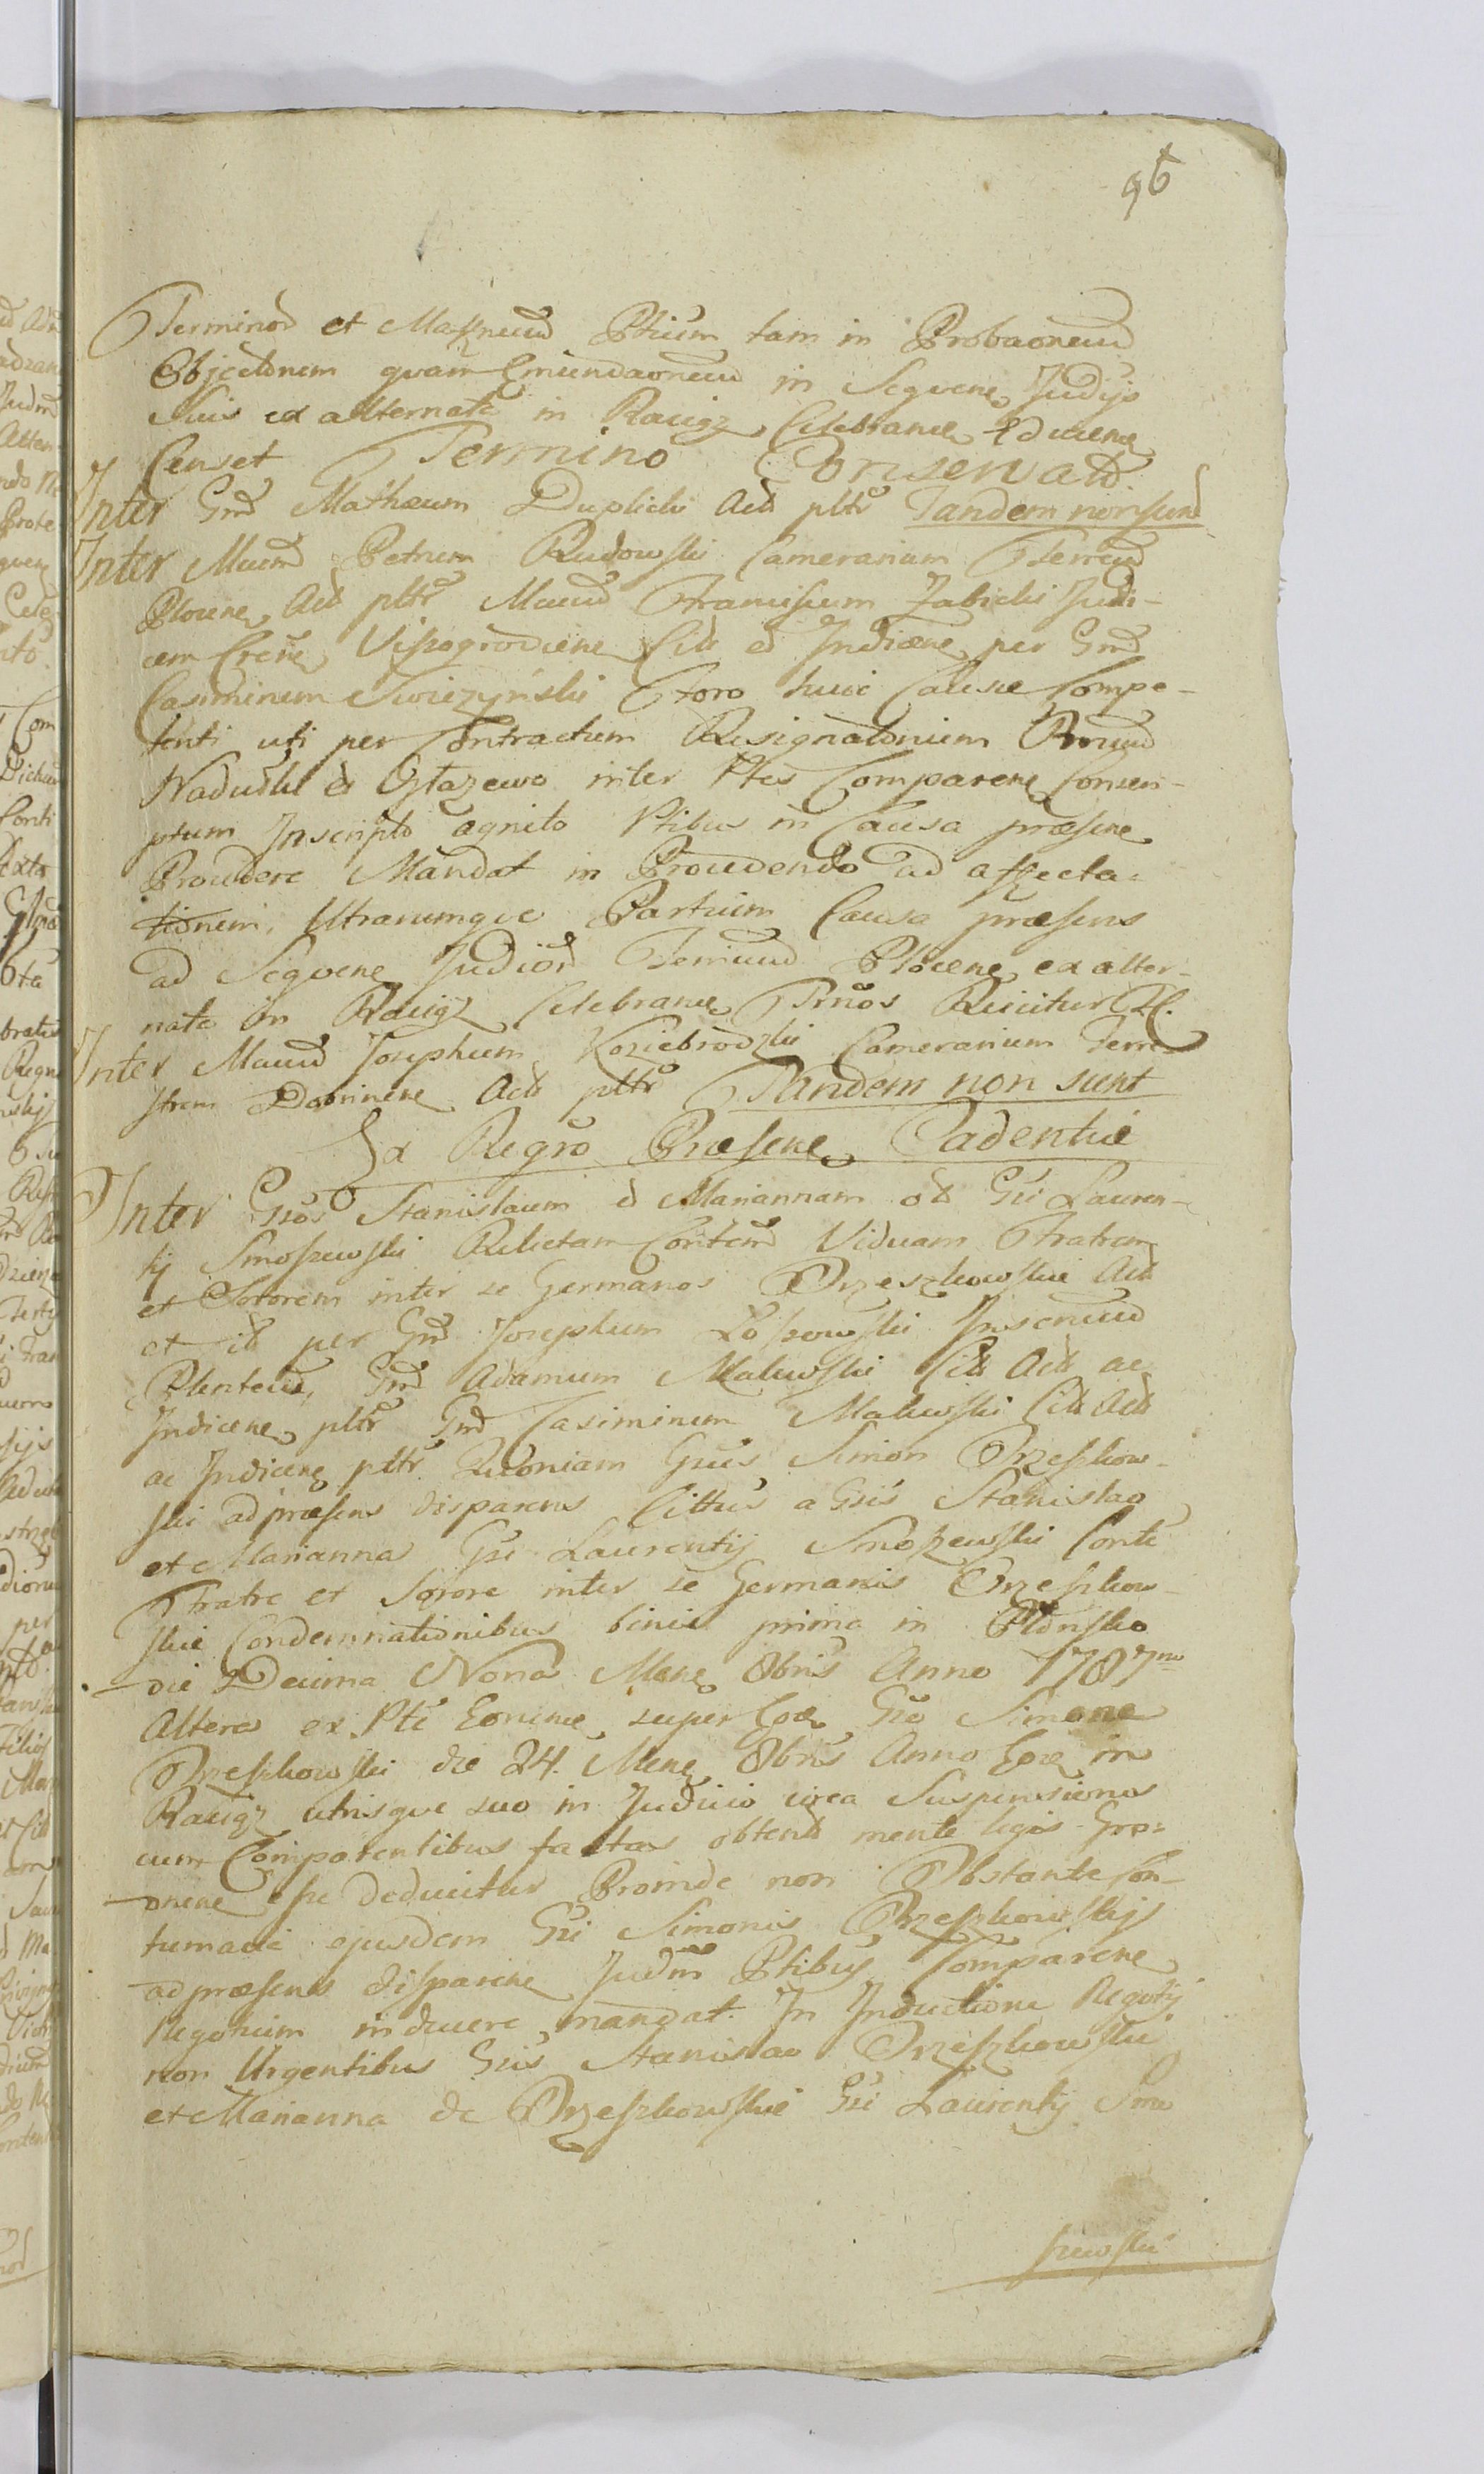 96
Terminor et Mayneum Ptium tam in Probaonem
Objectonem quam Emendaonem in Seqvene Judijs
suis ex alternata in Raciąż Celebrane Educene
Censet Termino Conservato
Inter Gnd Mathæum Duplicki Act pltr Tandem non sunt
Inter Mcum Petrum Rudowski Camerarium Terreum
Plocene Act pltr Mcum Franciscum Zabicki Judi-
cem Crene Vissogrodiene Cit et Indicene per Gnd
Casimirum Swiezynski Foro huic Causæ Compe-
tenti uti per Contractum Resignatonium Bnrum
Nadułki et Głazewo inter Ptes Comparene Conscri-
ptum Inscripto agnito Ptibus in Causa præsene
Procedere Mandat in Procedendo ad affecta-
tionem, Utrarumqve Partium Causa præsens
ad Seqvene Judior Terreum Plocene ex alter-
nata in Raciąż Celebrane Trnos Reicitur
Inter Mcum Josephum Koziebrodzki Camerarium Terre-
strem Dobrinene Act pltr Tandem non sunt
Ex Regro Præsene Cadentiæ
Inter Gsos Stanislaum et Mariannam ol Gsi Lauren-
tij Smoszewski Relictam Contem Viduam Fratrem
et Sororem inter se Germanos Orzeszkowskie Act
et it per Gnd Josephum Łoszewski Inscrum
Plentem, Gnd Adamum Malewski Cit Act ac
Indicene pltr Gnd Casimirum Malewski Cit Act
ac Indicene pltr Quoniam Gsus Simon Orzeszkow-
ski ad præsens disparens Cittus a Gsis Stanislao
et Marianna Gsi Laurentij Smoszewski Conte
Fratre et Sorore inter se Germanis Orzeszkow-
skie Condemnationibus binis prima in Płońsko
die Decima Nona Mene 8bris Anno 1787mo
Altera ex Pte Eorunæ super Eode Gso Simone
Orzeszkowski die 24. Mene 8bris Anno Eode in
Raciąż utrisqve suo in Judicio circa Suspensiones
cum Comparentibus factas obtent mente legis Gro-
onene esse deducitur Proinde non Obstante Con-
tumacia ejusdem Gsi Simonis Orzeszkowskij
ad præsens disparene Judm Ptibus Comparene
Negotium inducere mandat. In Inductione Negotij
non Urgentibus Gsis Stanislao Orzeszkowski
et Marianna de Orzeszkowskie Gsi Laurentij Smo
szewski